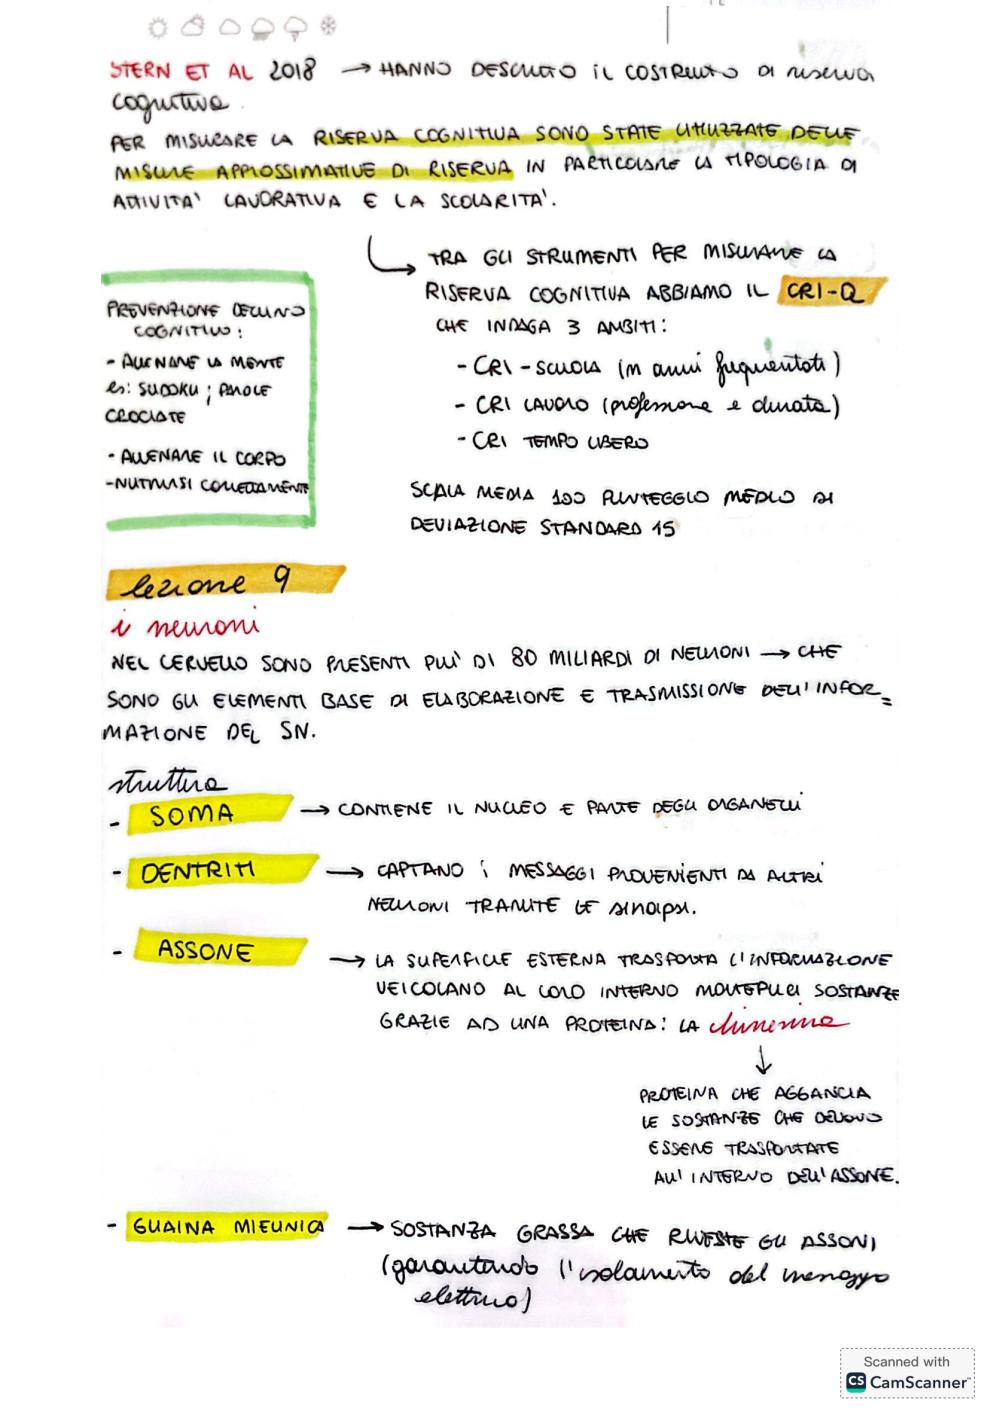 STERN ET AL 2018 → HANNO DESCRITTO IL COSTRUTTO DI riserva
cognitiva.
PER MISURARE LA RISERVA COGNITIVA SONO STATE UTILIZZATE DELLE
MISURE APPROSSIMATIVE DI RISERVA IN PARTICOLARE LA TIPOLOGIA DI
ATTIVITA' LAVORATIVA E LA SCOLARITA'.
TRA GLI STRUMENTI PER MISURARE LA
RISERVA COGNITIVA ABBIAMO IL CRI-Q
CHE INDAGA 3 AMBITI:
- CRI - SCUOLA (in anni frequentati)
- CRI LAVORO (professione e durata)
- CRI TEMPO LIBERO
SCALA MEDIA 100 PUNTEGGIO MEDIO DI
DEVIAZIONE STANDARD 15
PREVENZIONE DECLINO
COGNITIVO:
- ALLENARE LA MENTE
es: SUDOKU; PAROLE
CROCIATE
- ALLENARE IL CORPO
- NUTRIRSI CORRETTAMENTE
lezione 9
i neuroni
NEL CERVELLO SONO PRESENTI PIU' DI 80 MILIARDI DI NEURONI → CHE
SONO GLI ELEMENTI BASE DI ELABORAZIONE E TRASMISSIONE DELL'INFOR=
MAZIONE DEL SN.
struttura
- SOMA → CONTIENE IL NUCLEO E PARTE DEGLI ORGANELLI
- DENTRITI → CAPTANO i MESSAGGI PROVENIENTI DA ALTRI
NEURONI TRAMITE LE sinapsi.
- ASSONE → LA SUPERFICIE ESTERNA TRASPORTA L'INFORMAZIONE
VEICOLANO AL LORO INTERNO MOLTEPLICI SOSTANZE
GRAZIE AD UNA PROTEINA: LA chinesina
↓
PROTEINA CHE AGGANCIA
LE SOSTANZE CHE DEVONO
ESSERE TRASPORTATE
ALL'INTERNO DELL'ASSONE.
- GUAINA MIELINICA → SOSTANZA GRASSA CHE RIVESTE GLI ASSONI
(garantendo l'isolamento del messaggio
elettrico)
Scanned with
CS CamScanner